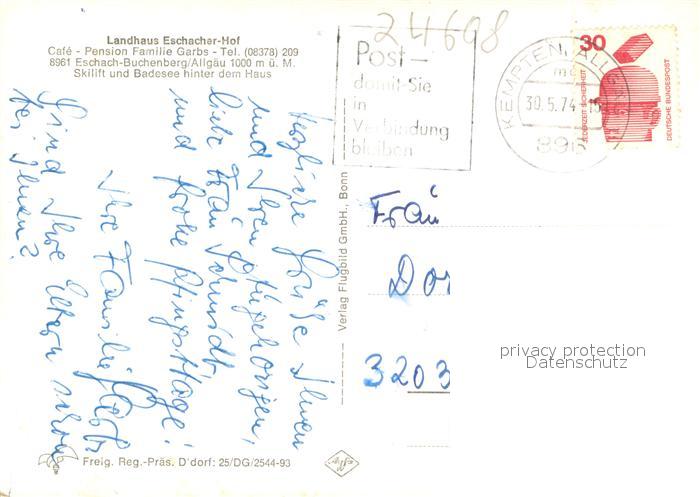 Landhaus Eschacher-Hof
Café - Pension Familie Garbs - Tel. (08378) 209
8961 Eschach-Buchenberg/Allgäu 1000 m ü. M.
Skilift und Badesee hinter dem Haus
24698
Post —
damit Sie
in
Verbindung
bleiben
KEMPTEN, ALLG
30.5.74-15
896
30
JEDERZEIT SICHERHEIT
DEUTSCHE BUNDESPOST
Herzliche Grüße Ihnen
und Ihren Angehörigen,
liebe Frau Schmidt,
und frohe Pfingsttage!
Ihre Familie Garbs
Sind Ihre Eltern schon
bei Ihnen?
Verlag Flugbild GmbH., Bonn
Frau
Dor
3203
privacy protection
Datenschutz
Freig. Reg.-Präs. D'dorf: 25/DG/2544-93